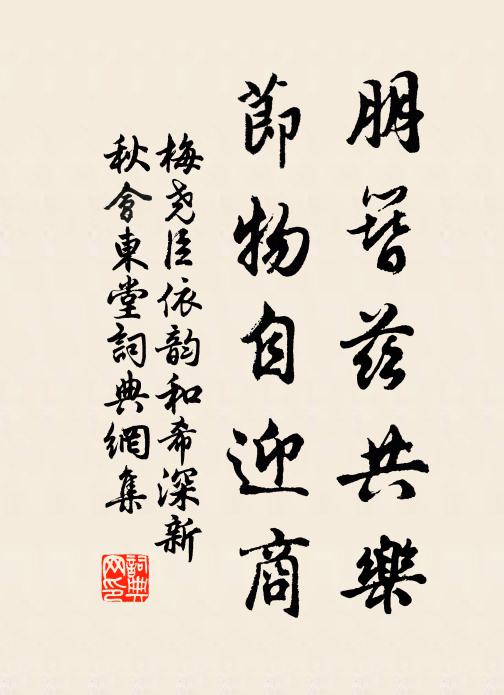 朋簪兹共樂
節物自迎商
梅堯臣依韵和希深新
秋會東堂詞典網集
詞典网印